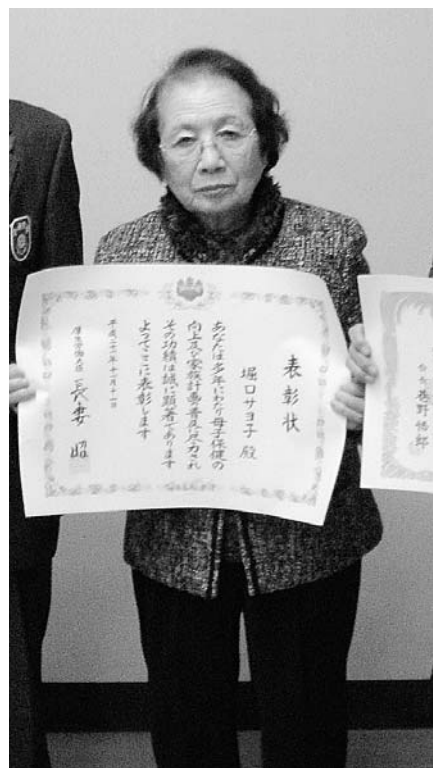 表彰状
堀口サヨ子 殿
あなたは多年にわたり母子保健の
向上及び家族計画の普及に尽力され
その功績は誠に顕著であります
よってここに表彰します
平成二十一年十一月十一日
厚生労働大臣 長妻 昭
会長 巷野悟郎